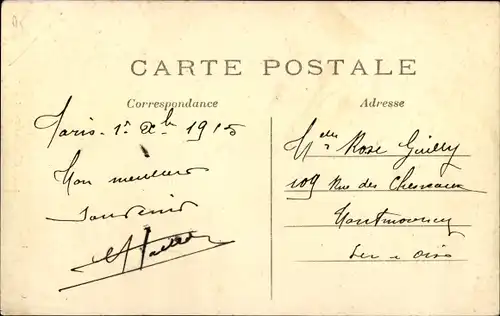 CARTE POSTALE
Correspondance
Paris - 1er 1915
Mon meilleur
souvenir
Adresse
Melle Rose
109 Rue des Chesneaux
Montmorency
Sei e Oise